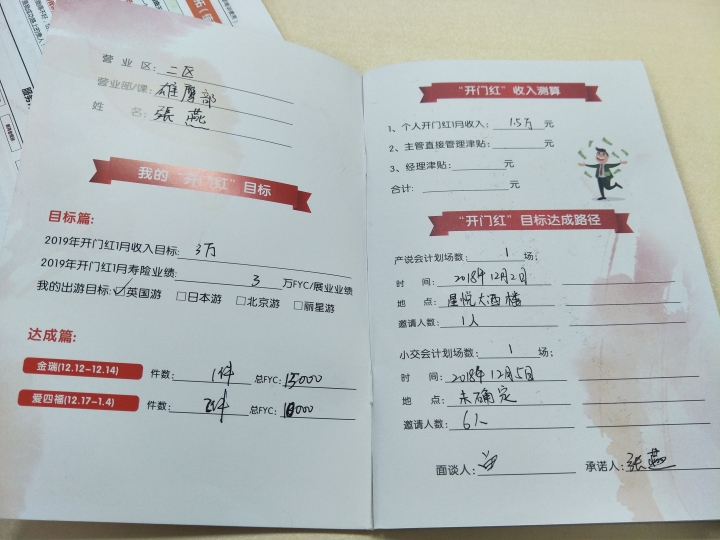 营 业 区: 二区
营业部/课: 雄鹰部
姓 名: 张燕
我的“开门红”目标
目标篇:
2019年开门红1月收入目标: 3万
2019年开门红1月寿险业绩: 3 万FYC/展业业绩
我的出游目标: ☑英国游 □日本游 □北京游 □丽星游
达成篇:
金瑞(12.12-12.14) 件数: 1件 总FYC: 15000
爱四福(12.17-1.4) 件数: 2件 总FYC: 10000
“开门红”收入测算
1、个人开门红1月收入: 1.5万 元
2、主管直接管理津贴: 元
3、经理津贴: 元
合计: 元
“开门红”目标达成路径
产说会计划场数: 1 场;
时 间: 2018年12月2日
地 点: 星悦大酒楼
邀请人数: 1人
小交会计划场数: 1 场;
时 间: 2018年12月5日
地 点: 未确定
邀请人数: 6人
面谈人: 承诺人: 张燕